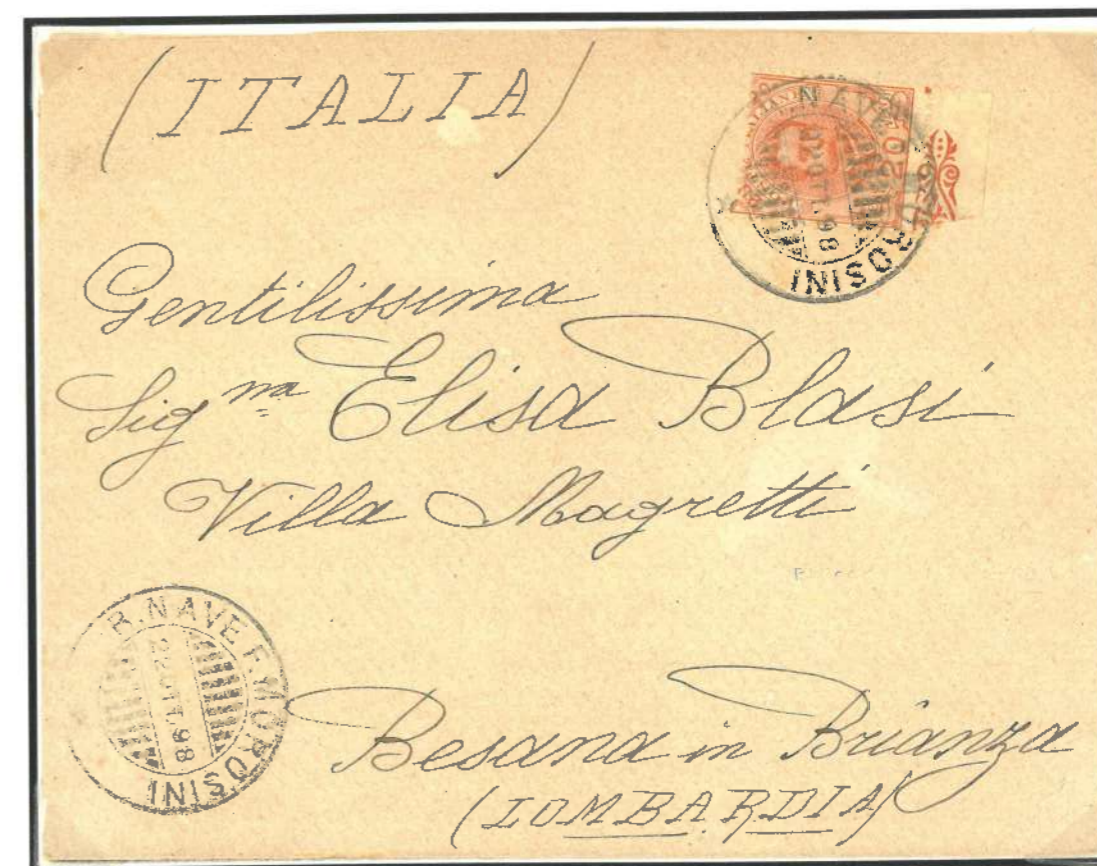 (ITALIA)
NAVE
20
22 OTT. 98
MOROSINI
Gentilissima
Sig na Elisa Blasi
Villa Magretti
R. NAVE F. MOROSINI
22 OTT. 98
Besana in Brianza
(LOMBARDIA)